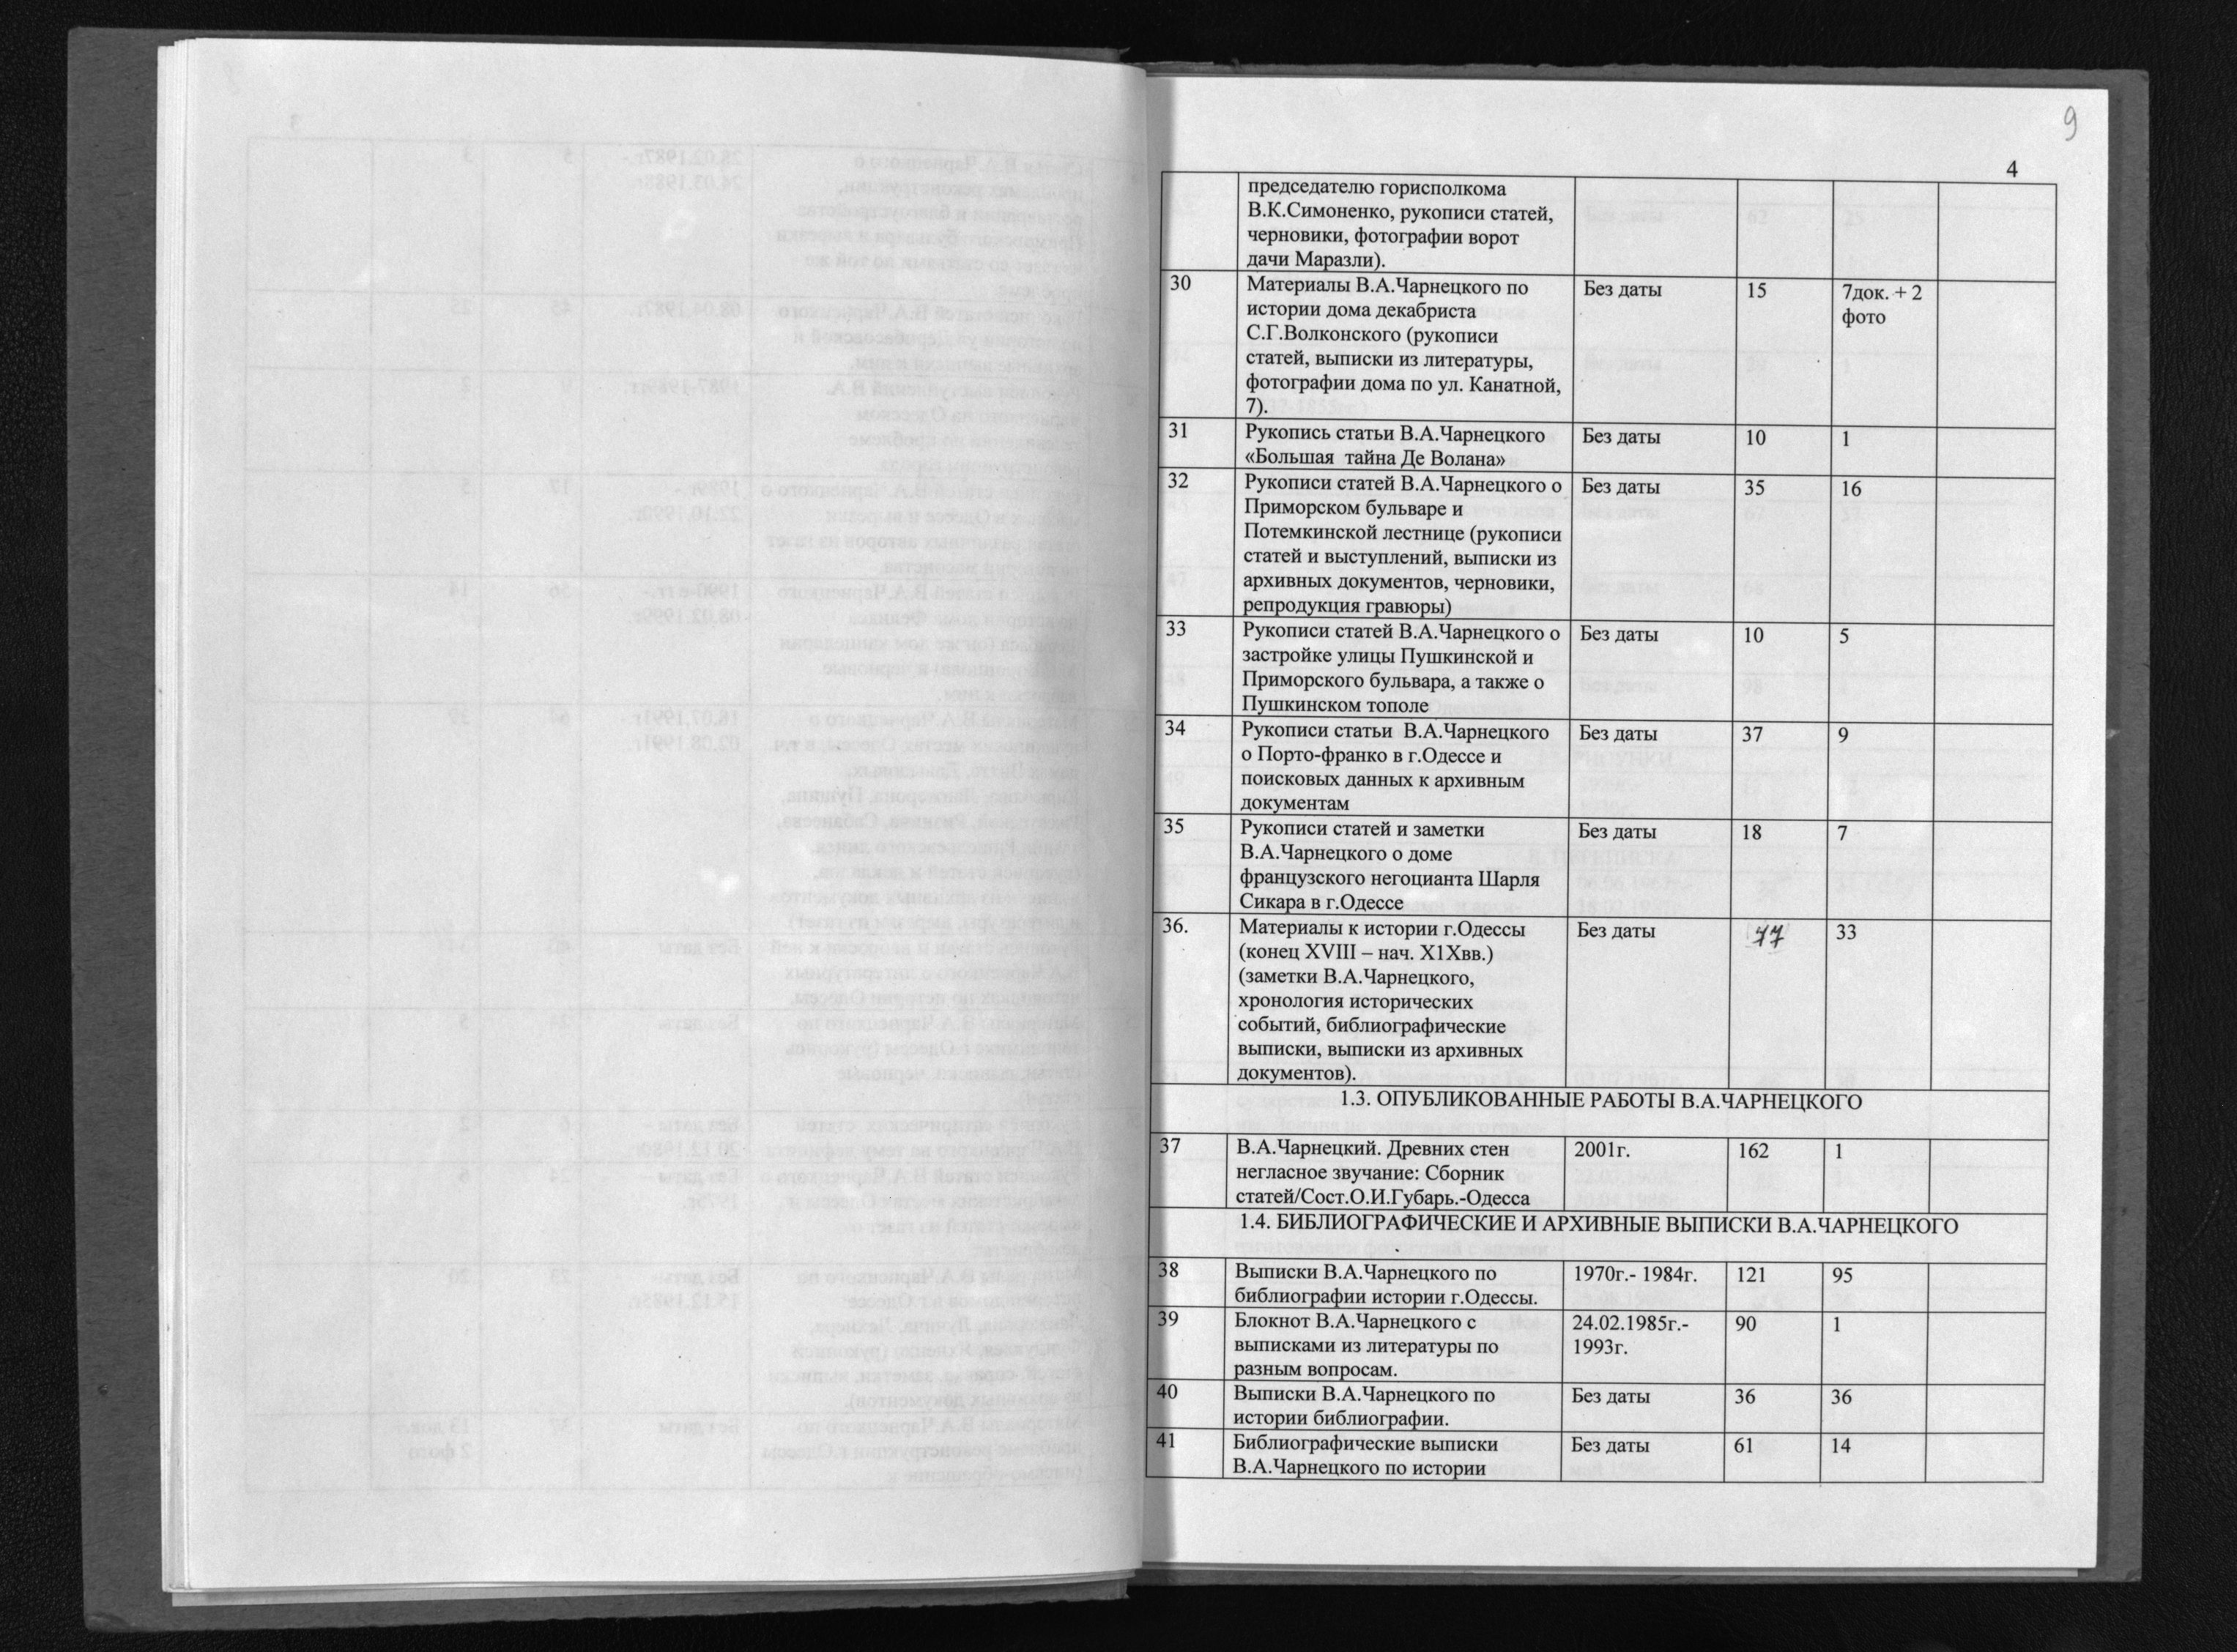 9
4
председателю горисполкома
В.К.Симоненко, рукописи статей,
черновики, фотографии ворот
дачи Маразли).
30 Материалы В.А.Чарнецкого по Без даты 15 7док. + 2
истории дома декабриста фото
С.Г.Волконского (рукописи
статей, выписки из литературы,
фотографии дома по ул. Канатной,
7).
31 Рукопись статьи В.А.Чарнецкого Без даты 10 1
«Большая тайна Де Волана»
32 Рукописи статей В.А.Чарнецкого о Без даты 35 16
Приморском бульваре и
Потемкинской лестнице (рукописи
статей и выступлений, выписки из
архивных документов, черновики,
репродукция гравюры)
33 Рукописи статей В.А.Чарнецкого о Без даты 10 5
застройке улицы Пушкинской и
Приморского бульвара, а также о
Пушкинском тополе
34 Рукописи статьи В.А.Чарнецкого Без даты 37 9
о Порто-франко в г.Одессе и
поисковых данных к архивным
документам
35 Рукописи статей и заметки Без даты 18 7
В.А.Чарнецкого о доме
французского негоцианта Шарля
Сикара в г.Одессе
36. Материалы к истории г.Одессы Без даты 77 33
(конец XVIII – нач. X1Xвв.)
(заметки В.А.Чарнецкого,
хронология исторических
событий, библиографические
выписки, выписки из архивных
документов).
1.3. ОПУБЛИКОВАННЫЕ РАБОТЫ В.А.ЧАРНЕЦКОГО
37 В.А.Чарнецкий. Древних стен 2001г. 162 1
негласное звучание: Сборник
статей/Сост.О.И.Губарь.-Одесса
1.4. БИБЛИОГРАФИЧЕСКИЕ И АРХИВНЫЕ ВЫПИСКИ В.А.ЧАРНЕЦКОГО
38 Выписки В.А.Чарнецкого по 1970г.- 1984г. 121 95
библиографии истории г.Одессы.
39 Блокнот В.А.Чарнецкого с 24.02.1985г.- 90 1
выписками из литературы по 1993г.
разным вопросам.
40 Выписки В.А.Чарнецкого по Без даты 36 36
истории библиографии.
41 Библиографические выписки Без даты 61 14
В.А.Чарнецкого по истории